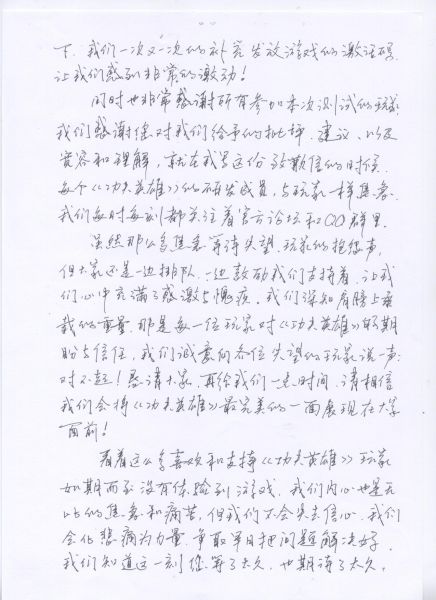 下，我们一次又一次的补充发放游戏的激活码，
让我们感到非常的激动！
同时也非常感谢所有参加本次测试的玩家，
我们感谢您对我们给予的批评、建议、以及
宽容和理解，就在我写这份致歉信的时候，
每个《功夫英雄》的研发成员，与玩家一样焦急，
我们每时每刻都关注着官方论坛和QQ群里，
虽然那么多焦急、等待、失望、玩家的抱怨声，
但大家还是一边排队，一边鼓励我们支持着，让我
们心中充满了感激与愧疚，我们深知肩膀上承
载的重量，那是每一位玩家对《功夫英雄》的期
盼与信任，我们诚意向各位失望的玩家说声：
对不起！恳请大家，再给我们一点时间，请相信
我们会将《功夫英雄》最完美的一面展现在大家
面前！
看着这么多喜欢和支持《功夫英雄》玩家
如期而至没有体验到游戏，我们内心也是无
比的焦急和痛苦，但我们不会失去信心，我们
会化悲痛为力量，争取早日把问题解决好，
我们知道这一刻您等了太久，也期待了太久，